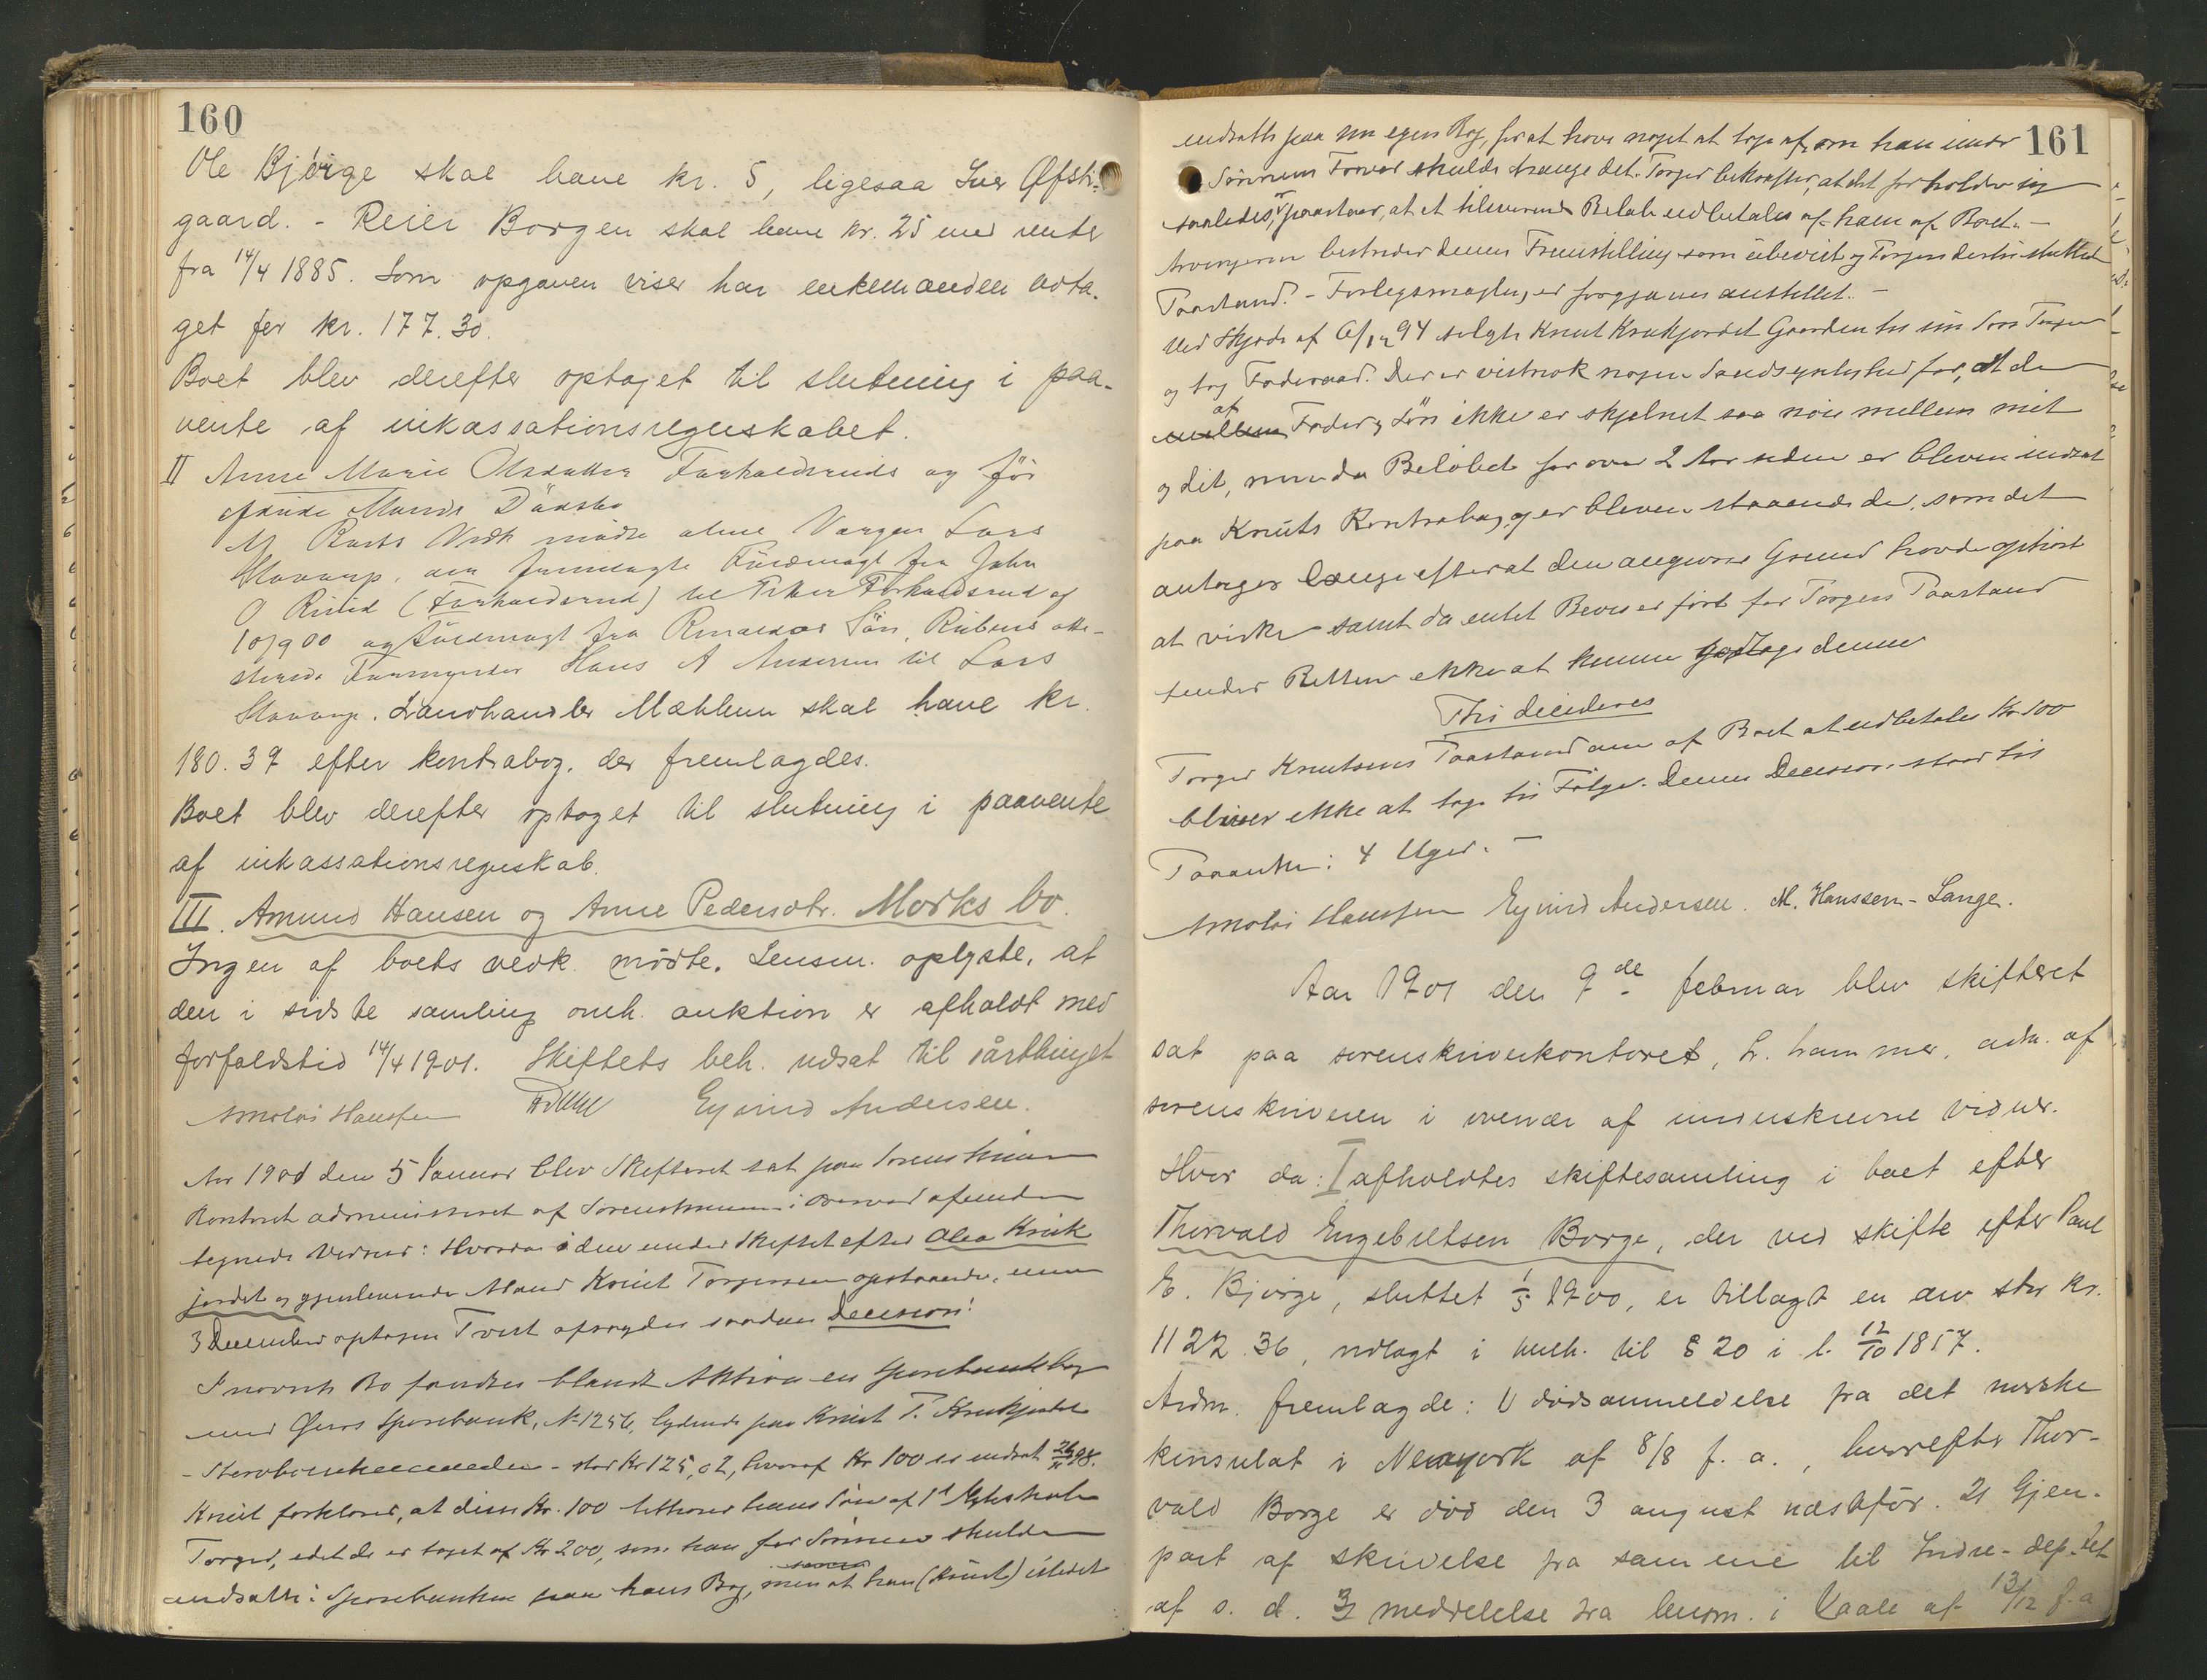 160
Ole Bjørge skal have kr. 5, ligesaa Iver Øfsti-
gaard. - Reier Borgen skal have kr. 25 med renter
fra 14/4 1885. Som opgaven viser har enkemanden udta-
get for kr. 177.30.
Boet blev derefter optaget til slutning i paa-
vente af inkassationsregnskabet.
II Anne Marie Olsdatter Forholdsruds og før
afdøde Mands Dødsbo
Af Boets Vedk mødte alene Vergen Lars
fremlagte Fuldmagt fra John
O Ruud (Forholdsrud) til Forholdsrud af
10/9 00 og Fuldmagt fra Søn, Rubens
Formynder Hans A Andersen til Lars
Landhandler Mæhlum skal have kr.
180.37 efter kontrabog, der fremlagdes.
Boet blev derefter optaget til slutning i paavente
af inkassationsregnskab.
III. Amund Hansen og Anne Pedersdtr. Morks bo.
Ingen af boets vedk. mødte. Lensm. oplyste, at
den i sidste samling omh. auktion er afholdt med
forfaldstid 14/4 1901. Skiftets beh. udsat til vårthinget
Hanssen Eyvind Andersen.
Aar 1901 den 5 Januar blev Skifteret sat paa Sorenskriver
Kontoret administreret af Sorenskriveren i Overvær af under
tegnede Vidner: Hvorda i den under Skiftet efter Olea Kruk
jordet og gjenlevende Mand Knut Torgersen opstaaede, under
3 December optagen Tvist afsagdes saadan Decision:
I nævnte Bo fandtes blandt Aktiva en Sparebankbog
med Sparebank, No 1256, lydende paa Knut T. Krukjordet
- Sterboenkemanden - stor Kr 125,02, hvoraf Kr 100 er indsat 98.
Knut forklarer, at disse Kr. 100 tilhører hans Søn af 1ste Ægteskab
Torger, idet de er taget af Kr 200, som han for Sønnen skulde
indsætte i Sparebanken paa hans Bog, men at han (Knut) istedet
161
indsatte paa sin egen Bog, for at have noget at tage af, om han under
Sønnens Fravær skulde trænge det. Torger bekræfter, at det forholder sig
saaledes, og paastaar, at et tilsvarende Beløb udbetales af ham af Boet. -
Arvingerne bestrider denne Fremstilling som ubevist og Torgers dertil sluttede
Paastand. - Forligsmægling er forgjæves anstillet. -
Ved Skjøde af 6/12 94 solgte Knut Krukjordet Gaarden til sin Søn Torger
og tog Føderaad. Der er vistnok nogen Sandsynlighed for, at der
mellem af Fader og Søn ikke er skjelnet saa nøie mellem mit
og dit, men da Beløbet for over 2 Aar siden er bleven indsat
paa Knuts Kontrabog, og er bleven staaende der, som det
antages længe efterat den angivne Grund havde ophørt
at virke samt da intet Bevis er ført for Torgers Paastand
finder Retten ikke at kunne godtage denne
Thi decideres
Torger Knutsens Paastand om af Boet at udbetales Kr 100
bliver ikke at tage til Følge. Denne Decision staar til
Paaanke: 4 Uger. -
Hanssen Eyvind Andersen. M. Hanssen-Lange.
Aar 1901 den 9de februar blev skifteret
sat paa sorenskriverkontoret, L. hammer, adm. af
sorenskriveren i overvær af underskrevne vidner.
Hvor da: I afholdtes skiftesamling i boet efter
Thorvald Engebretsen Borge, der ved skifte efter Paul
E. Bjørge, sluttet 1/5 1900, er tillagt en arv stor kr.
1122.36, udlagt i henh. til § 20 i l. 12/10 1857.
Adm. fremlagde: 1) dødsanmeldelse fra det norske
konsulat i Newyork af 8/8 f. a., hvorefter Thor-
vald Borge er død den 3 august næstfør. 2) Gjen-
part af skrivelse fra samme til Indre-dep.tet
af s. d. 3) meddelelse fra lensm. i Vaale af 13/12 f. a.